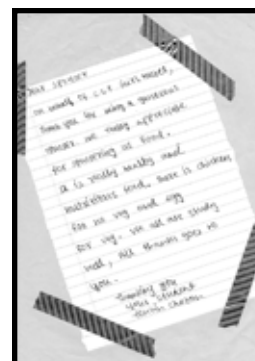 Dear sponsor
on behalf of
thank you for being a generous
sponsor. we really appreciate
for sponsoring us food.
it is really healthy and
nutritious food. there is chicken
for no veg and egg
for veg. we all are study
well, all thanks goes to
you.
Thanking you
your student